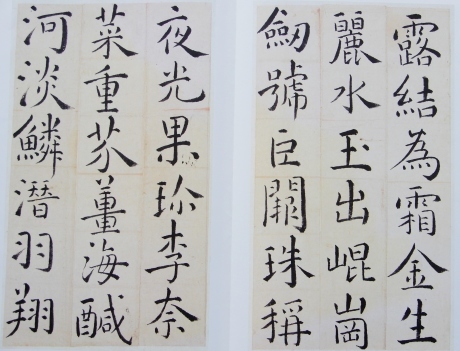 露結為霜金生
麗水玉出崐崗
劔號巨闕珠稱
夜光果珎李奈
菜重芥薑海醎
河淡鱗潛羽翔